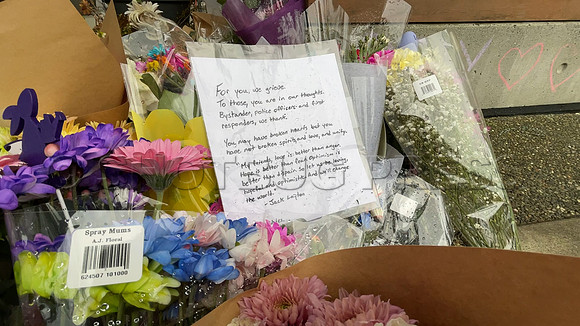 For you, we grieve.
To those, you are in our thoughts.
Bystander, police officers and first
responders, we thank.
You may have broken hearts but you
have not broken spirits, love, and unity.
"My friends, love is better than anger.
Hope is better than fear. Optimism is
better than despair. So let us be loving,
hopeful and optimistic. And we'll change
the world."
- Jack Layton
Spray Mums
A.J. Floral
624507 101000